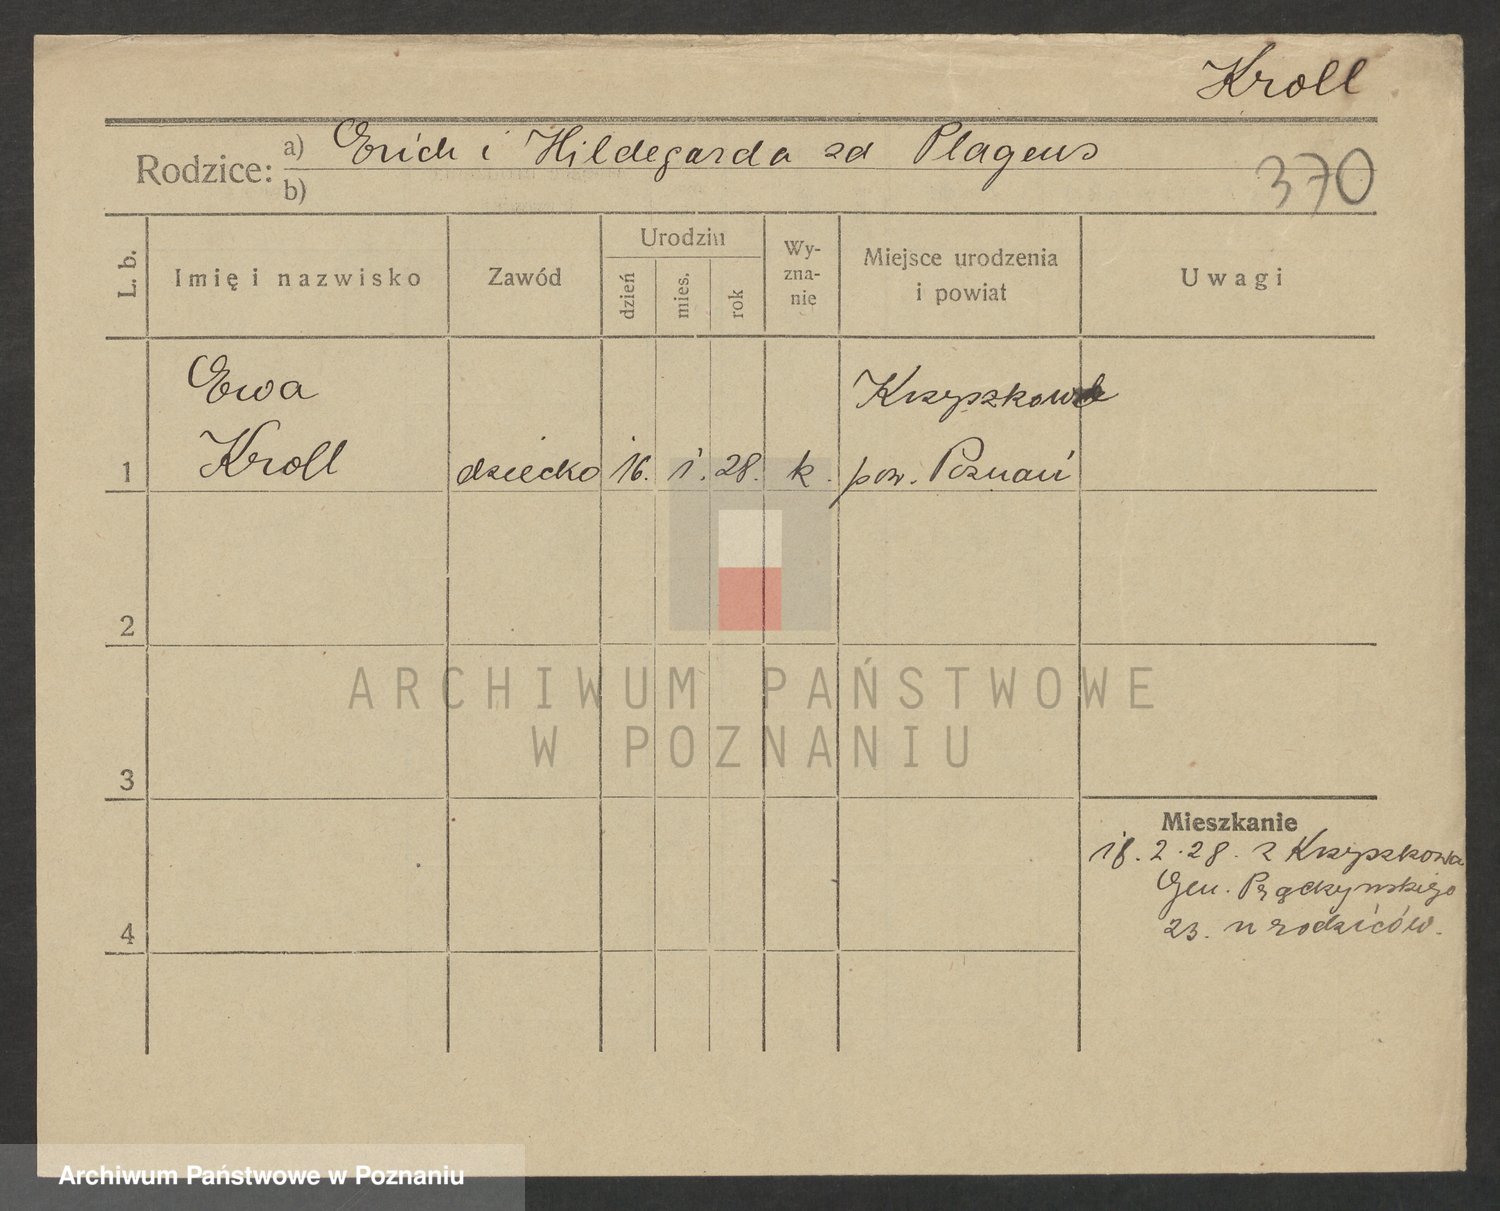 Kroll
Rodzice: a) Erich i Hildegarda zd Plagens
b)
370
L. b.
Imię i nazwisko
Zawód
Urodziu
dzień
mies.
rok
Wy-
zna-
nie
Miejsce urodzenia
i powiat
Uwagi
Ewa
Krzyszkowo
1 Kroll dziecko 16. 1. 28. k. pow. Poznań
2
ARCHIWUM PAŃSTWOWE
W POZNANIU
3
Mieszkanie
18. 2. 28. z Krzyszkowa
Gen. Prądzyńskiego
4
23. u rodziców.
Archiwum Państwowe w Poznaniu